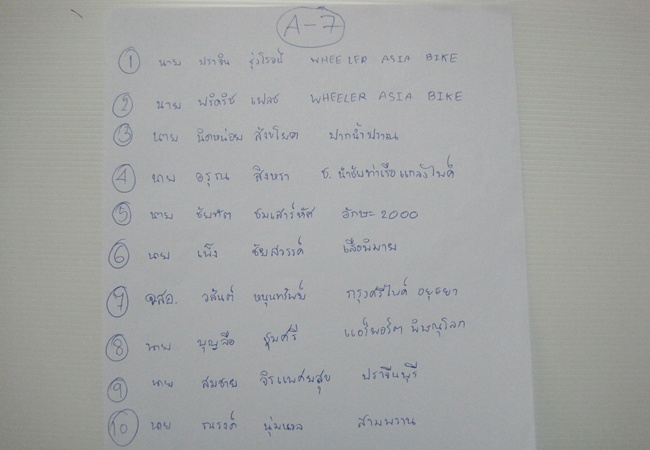 A-7
1 นาย ปราจิน รุ่งโรจน์ WHEELER ASIA BIKE
2 นาย ฟรีดริช เฟลช WHEELER ASIA BIKE
3 นาย นิดหน่อย สังขโยค ปากน้ำปราณ
4 นาย อรุณ สิงหรา ช. นำชัยท่าเรือแกลงไบค์
5 นาย ชัยทัต ชมเสาร์หัศ อักษะ 2000
6 นาย เพ็ง ชัยสวรรค์ เสือพิมาย
7 จสอ. วสันต์ หนุนทรัพย์ กรุงศรีไบค์ อยุธยา
8 นาย บุญลือ ชุมศรี แอร์พอร์ต พิษณุโลก
9 นาย สมชาย จิรแพศยสุข ปราจีนบุรี
10 นาย ณรงค์ นุ่มนวล สามพราน